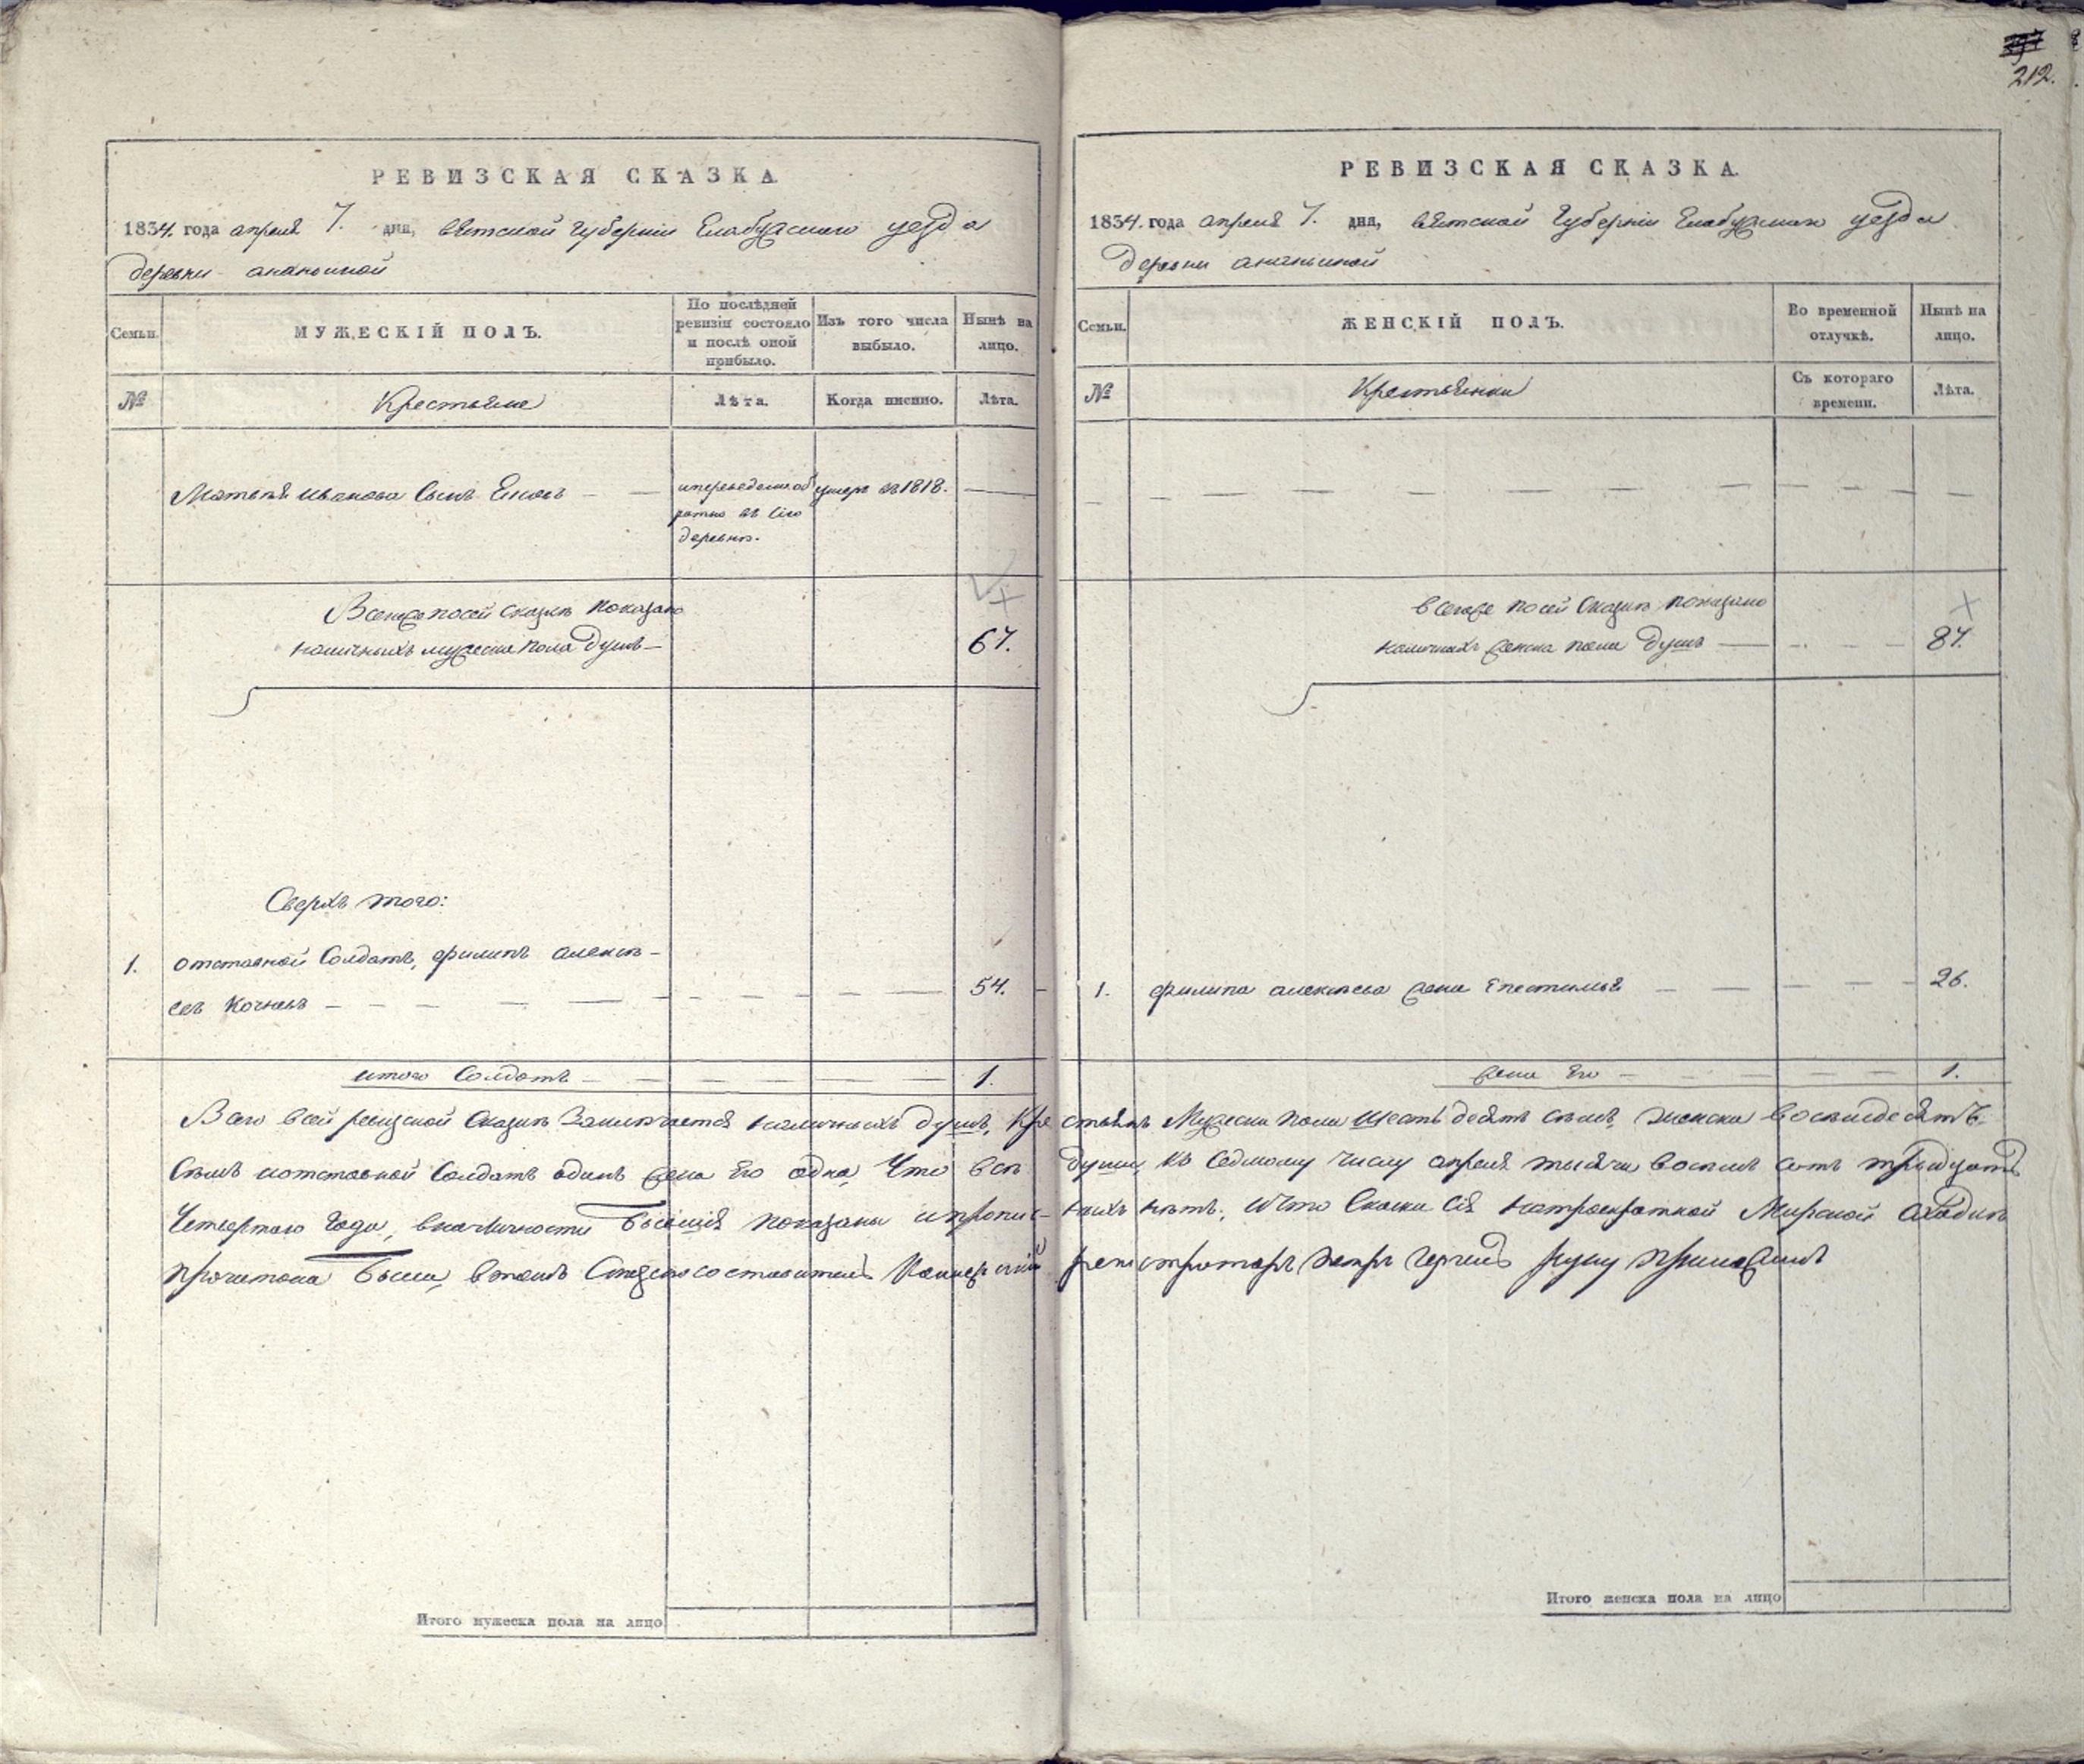 212.
РЕВИЗСКАЯ СКАЗКА
1834. года апреля 7. дня, вятской губерніи Елабужскаго уезда
деревни ананьиной
Семьи.
МУЖЕСКІЙ ПОЛЪ.
По послѣдней
ревизіи состояло
и послѣ оной
прибыло.
Изъ того числа
выбыло.
Нынѣ на
лицо.
№
Крестьяне
Лѣта.
Когда имянно.
Лѣта.
Матвѣя иванова Сынъ
ипереведенъ об
ратно въ Сію
деревню.
умеръ въ 1818.
Всегоже посей сказкѣ показано
наличныхъ мужеска пола душъ
67.
Сверхъ того:
1. отставной Солдатъ, филипъ алексѣ-
евъ Кочневъ
54.
итого Солдатъ
1.
РЕВИЗСКАЯ СКАЗКА.
1834. года апреля 7. дня, вятской губерніи Елабужскаго уезда
деревни ананьиной
Семьи.
ЖЕНСКІЙ ПОЛЪ.
Во временной
отлучкѣ.
Нынѣ на
лицо.
№
Крестьянки
Съ котораго
времени.
Лѣта.
всегоже посей Сказкѣ показано
наличныхъ женска пола душъ
87.
1. филипа алексѣева жена Епестимья
26.
жена Его
1.
Всего всей ревизской Сказкѣ Заключается наличныхъ душъ, Кре стьянъ Мужеска пола шесть десятъ семь, женска восемдесятъ
Семь иотставной Солдатъ одинъ жена Его одна, Что всѣ души, къ Седмому числу апреля тысяча восемь сотъ тридцать
Четвертаго года, вналичности бывшія показаны ипропис- ныхъ нѣтъ; ичто Сказка Сія натроекратной Мирской сходкѣ
прочитана была, втомъ Сказкосоставитель Коллежскій регистраторъ петръ руку приложилъ
Итого мужеска пола на лицо
Итого женска пола на лицо